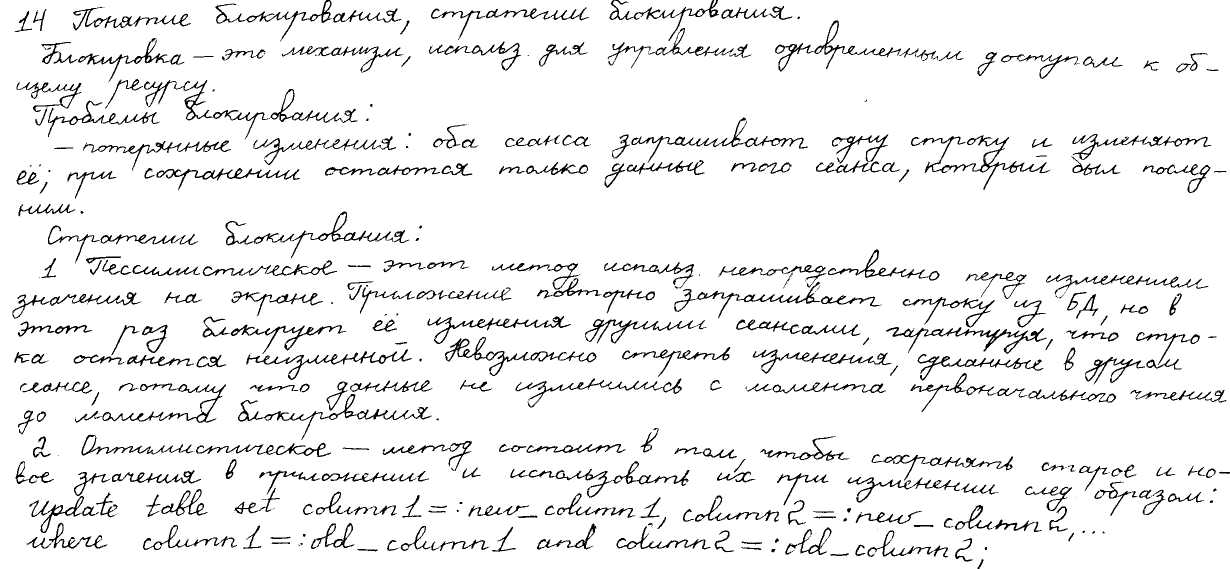 14 Понятие блокирования, стратегии блокирования.
Блокировка — это механизм, использ. для управления одновременным доступом к об-
щему ресурсу.
Проблемы блокирования:
— потерянные изменения: оба сеанса запрашивают одну строку и изменяют
её; при сохранении остаются только данные того сеанса, который был послед-
ним.
Стратегии блокирования:
1 Пессимистическое — этот метод использ. непосредственно перед изменением
значения на экране. Приложение повторно запрашивает строку из БД, но в
этот раз блокирует её изменения другими сеансами, гарантируя, что стро-
ка останется неизменной. Невозможно стереть изменения, сделанные в другом
сеансе, потому что данные не изменились с момента первоначального чтения
до момента блокирования.
2. Оптимистическое — метод состоит в том, чтобы сохранять старое и но-
вое значения в приложении и использовать их при изменении след образом:
Update table set column1=:new_column1, column2=:new_column2,...
where column1=:old_column1 and column2=:old_column2;